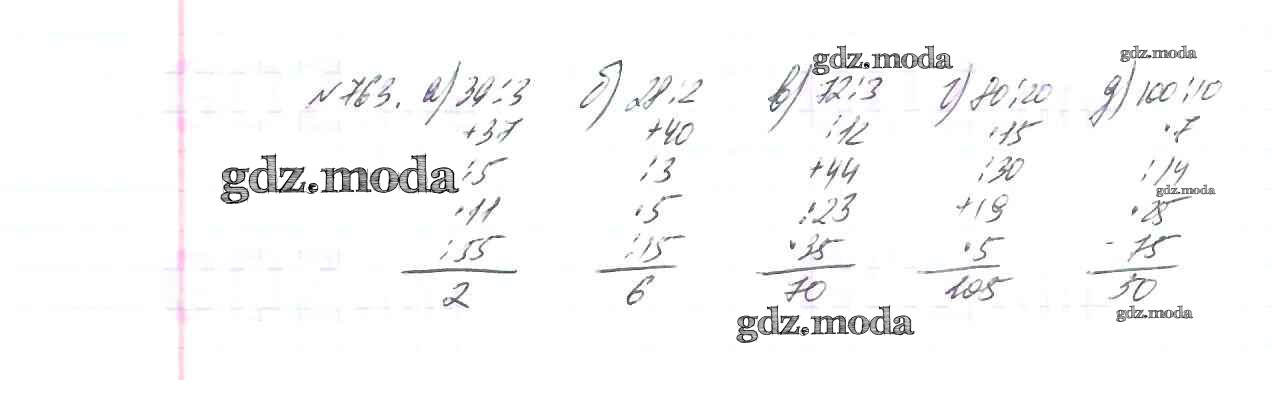 №763. а) 39:3 б) 28:2 в) 72:3 г) 80:20 д) 100:10
+37 +40 :12 ·15 ·7
:5 :3 +44 :30 :14
·11 ·5 :23 +19 ·25
:55 :15 ·35 ·5 -75
2 6 70 105 50
gdz.moda
gdz.moda
gdz.moda
gdz.moda
gdz.moda
gdz.moda